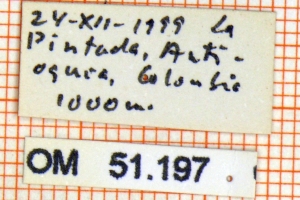 24-XII-1999 La
Pintada, Anti-
oquia, Colombia
1000m.
OM 51.197